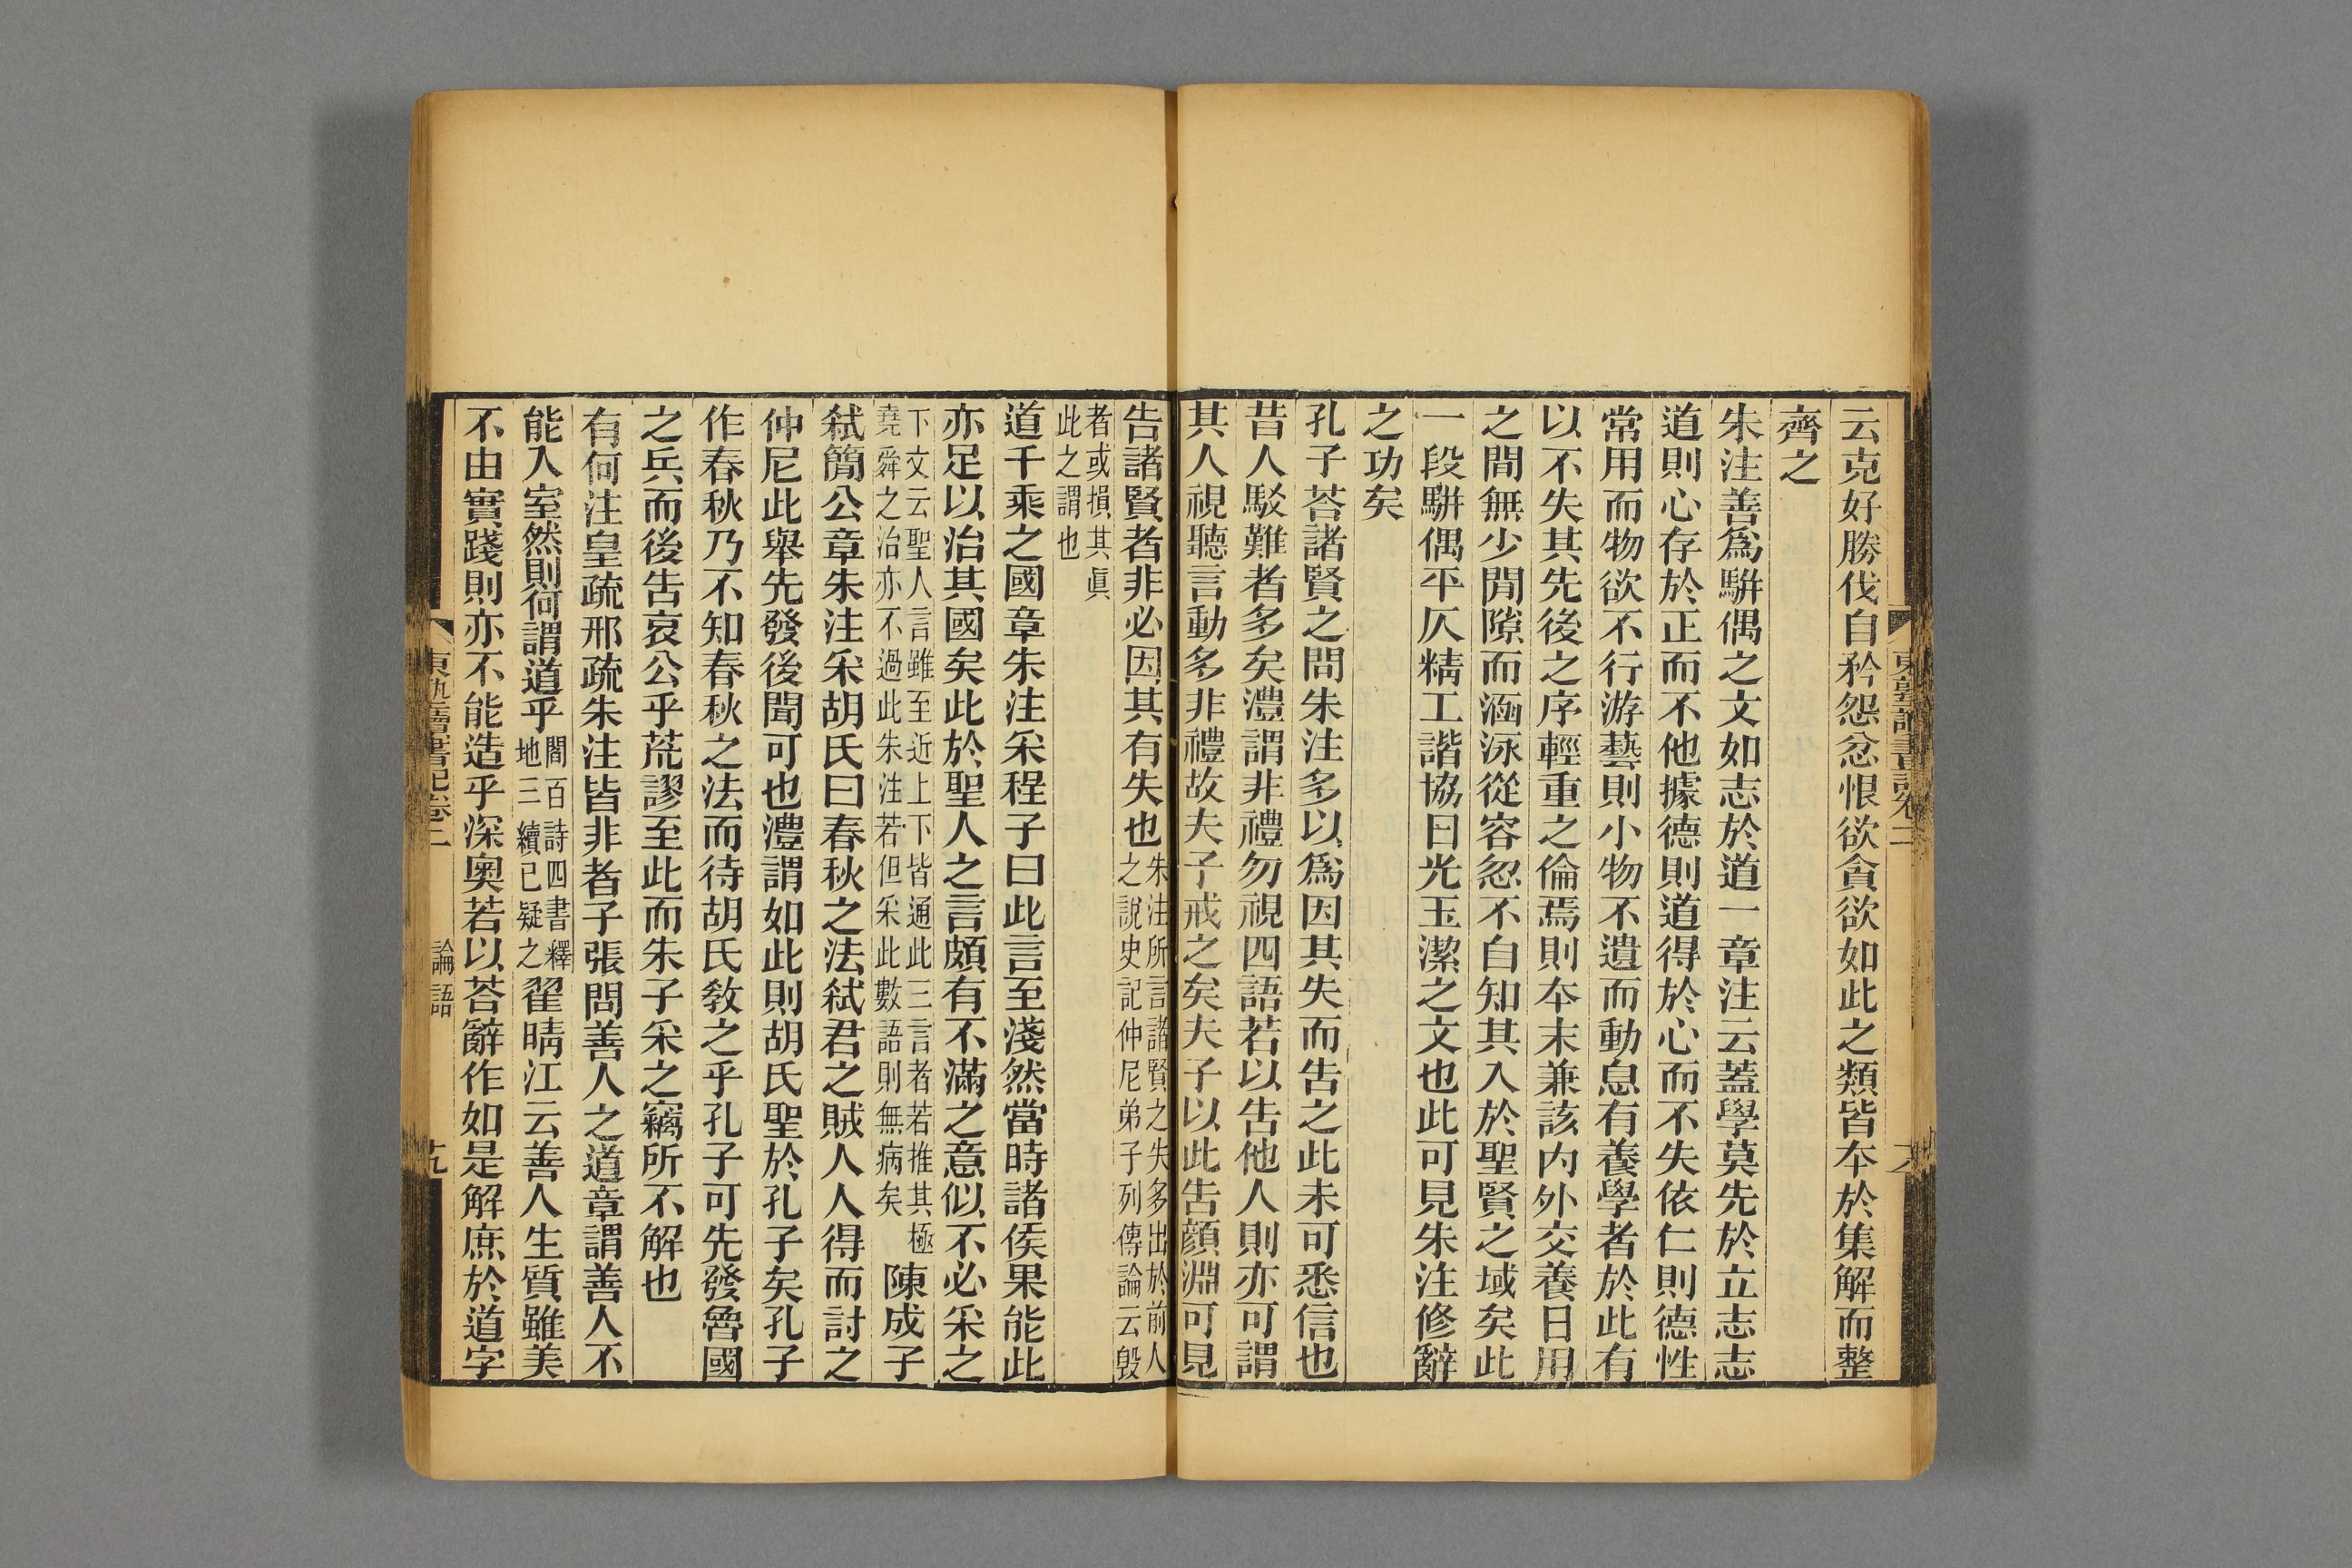 云克好勝伐自矜怨忿恨欲貪欲如此之類皆本於集解而整
齊之
朱注善爲駢偶之文如志於道一章注云蓋學莫先於立志志
道則心存於正而不他據德則道得於心而不失依仁則德性
常用而物欲不行游藝則小物不遺而動息有養學者於此有
以不失其先後之序輕重之倫焉則本末兼該內外交養日用
之間無少閒隙而涵泳從容忽不自知其入於聖賢之域矣此
一段駢偶平仄精工諧協日光玉潔之文也此可見朱注修辭
之功矣
孔子荅諸賢之問朱注多以爲因其失而告之此未可悉信也
昔人駁難者多矣澧謂非禮勿視四語若以告他人則亦可謂
其人視聽言動多非禮故夫子戒之矣夫子以此告顏淵可見
告諸賢者非必因其有失也朱注所言諸賢之失多出於前人
之說史記仲尼弟子列傳論云毀
者或損其眞
此之謂也
道千乘之國章朱注采程子曰此言至淺然當時諸侯果能此
亦足以治其國矣此於聖人之言頗有不滿之意似不必采之
下文云聖人言雖至近上下皆通此三言者若推其極
堯舜之治亦不過此朱注若但采此數語則無病矣
陳成子
弒簡公章朱注采胡氏曰春秋之法弒君之賊人人得而討之
仲尼此舉先發後聞可也澧謂如此則胡氏聖於孔子矣孔子
作春秋乃不知春秋之法而待胡氏敎之乎孔子可先發魯國
之兵而後告哀公乎荒謬至此而朱子采之竊所不解也
有何注皇疏邢疏朱注皆非者子張問善人之道章謂善人不
能入室然則何謂道乎
閻百詩四書釋
地三續已疑之
翟晴江云善人生質雖美
不由實踐則亦不能造乎深奧若以荅辭作如是解庶於道字
論語